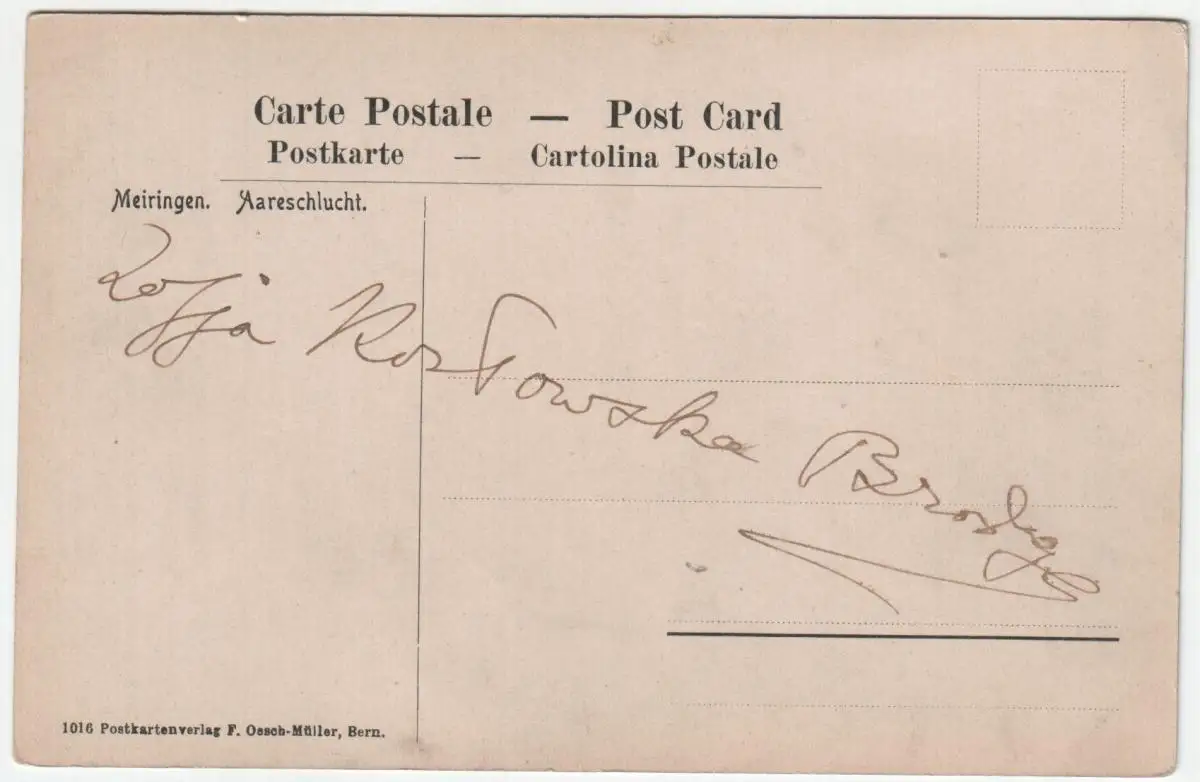 Carte Postale — Post Card
Postkarte — Cartolina Postale
Meiringen. Aareschlucht.
Zofja
1016 Postkartenverlag F. Oesch-Müller, Bern.